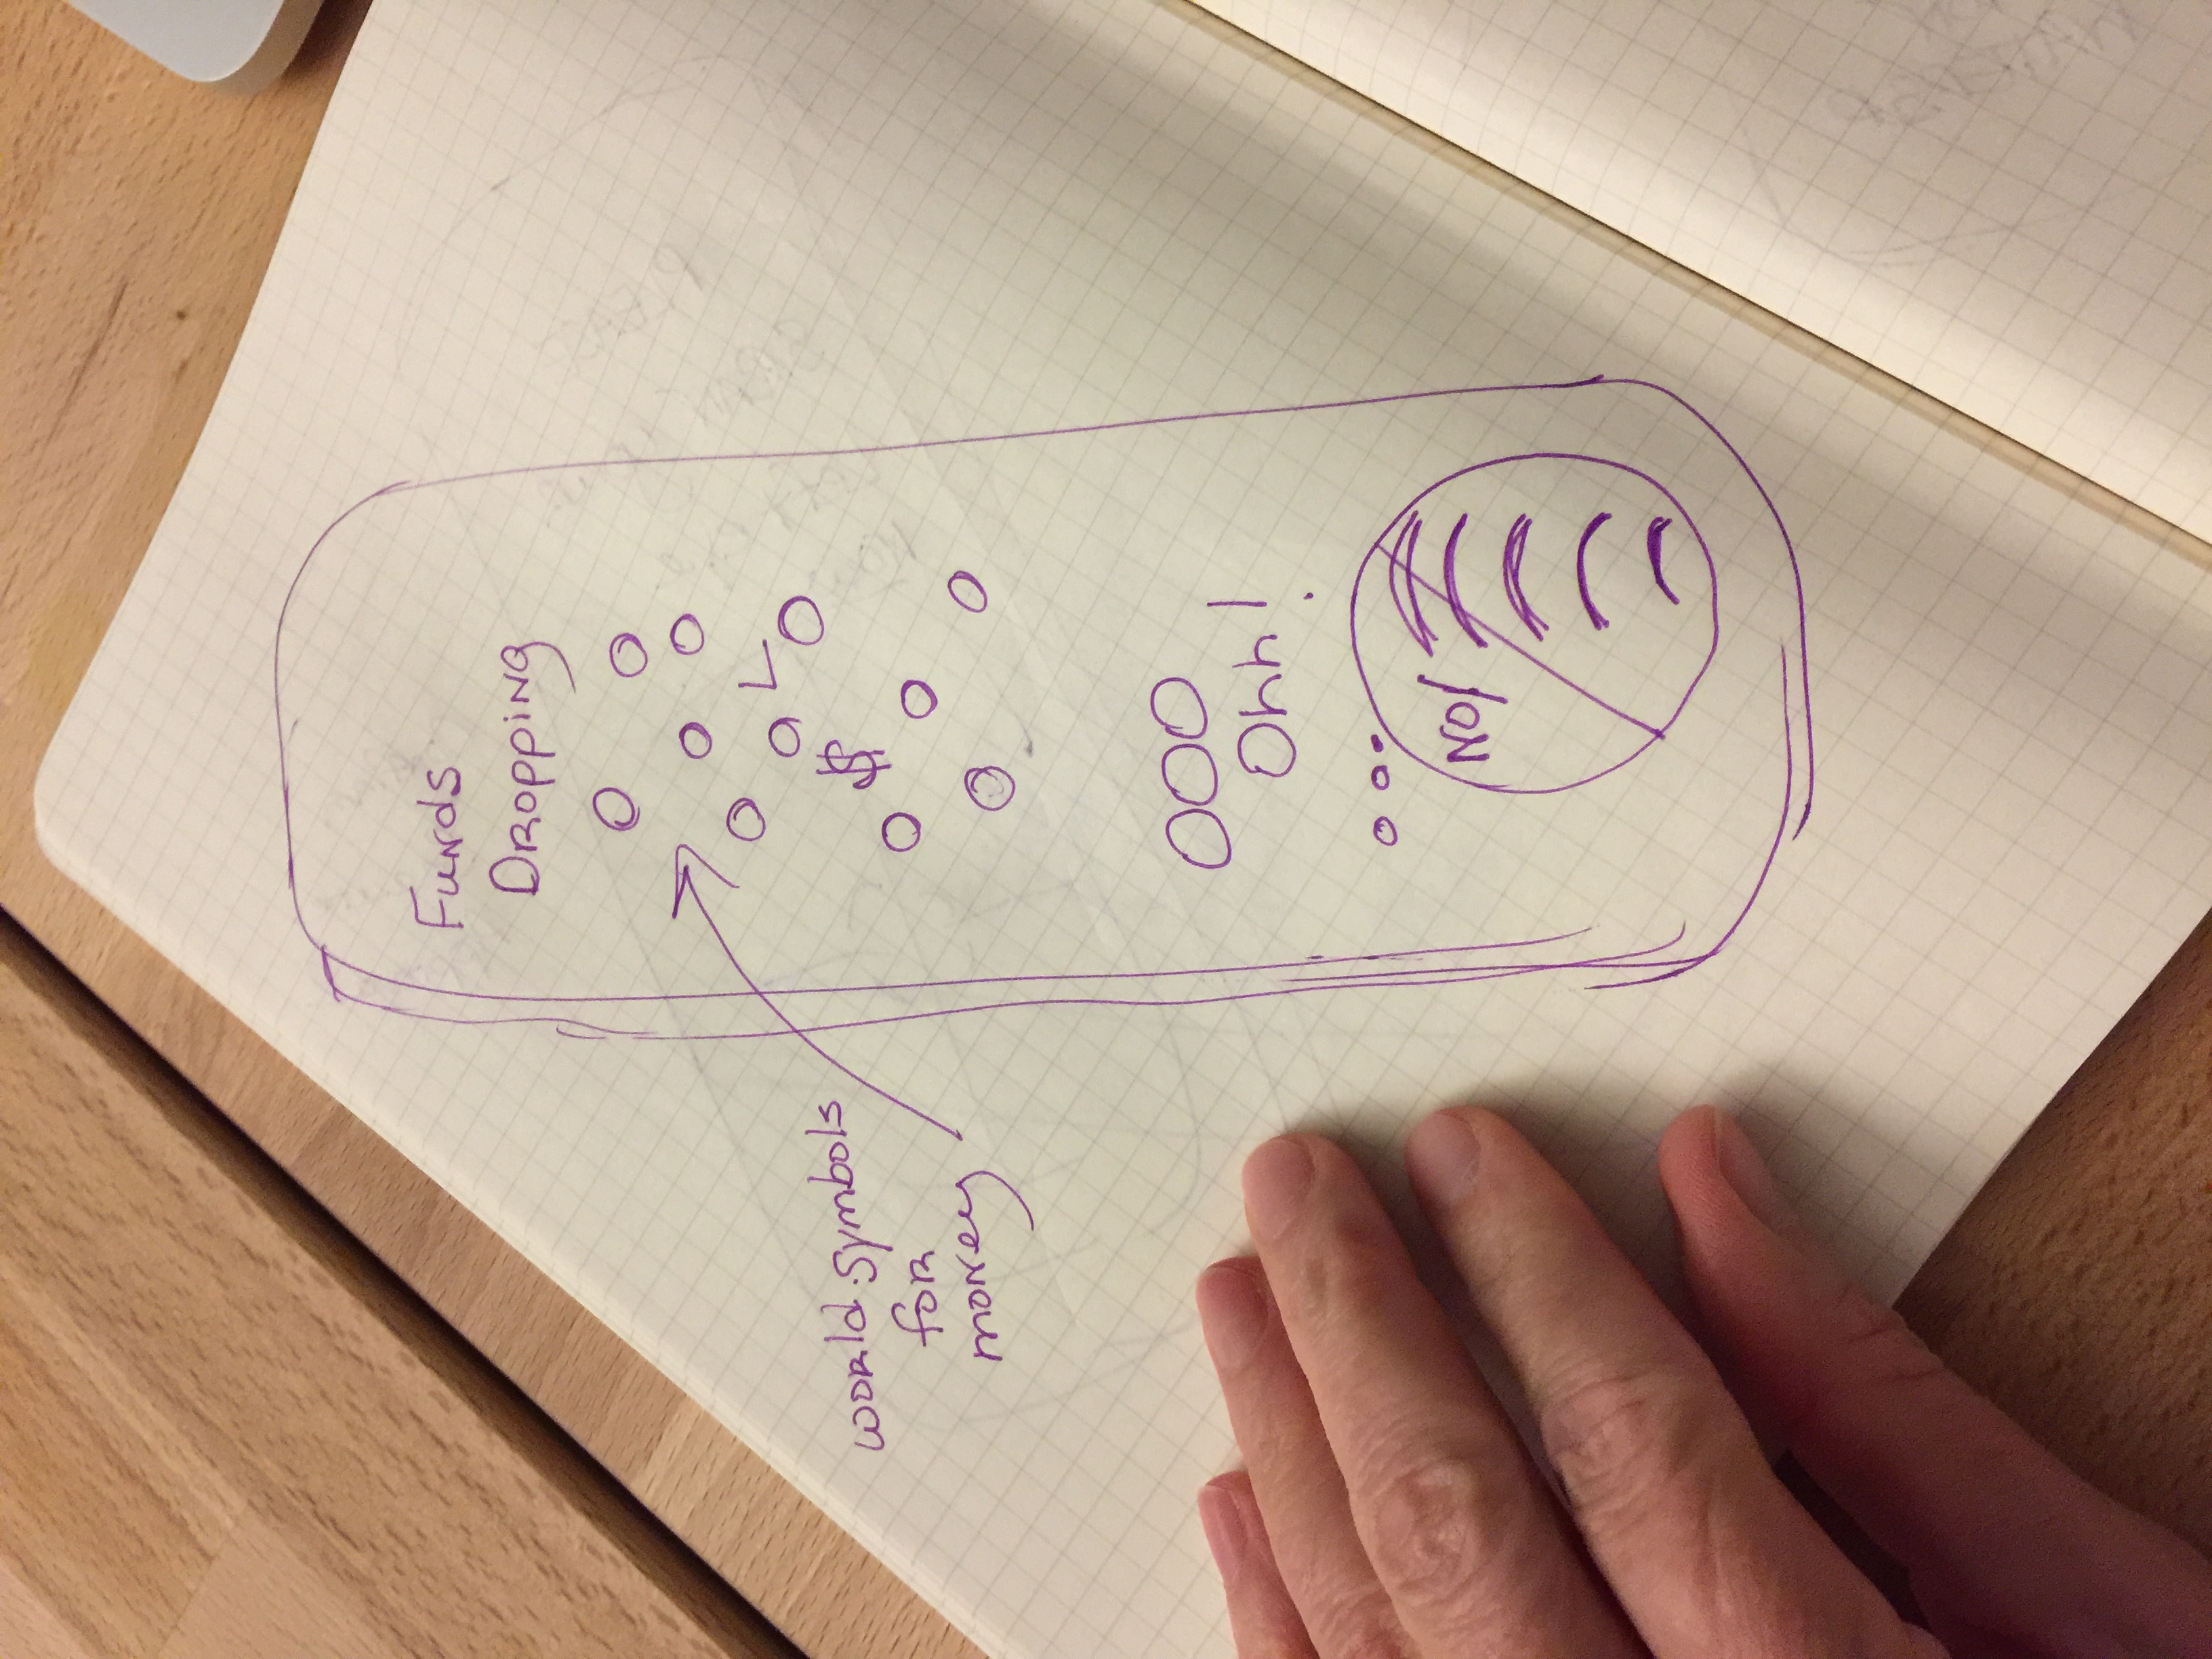 Funds
Dropping
world symbols
for
money
$
OOO
Ohh!
NO/